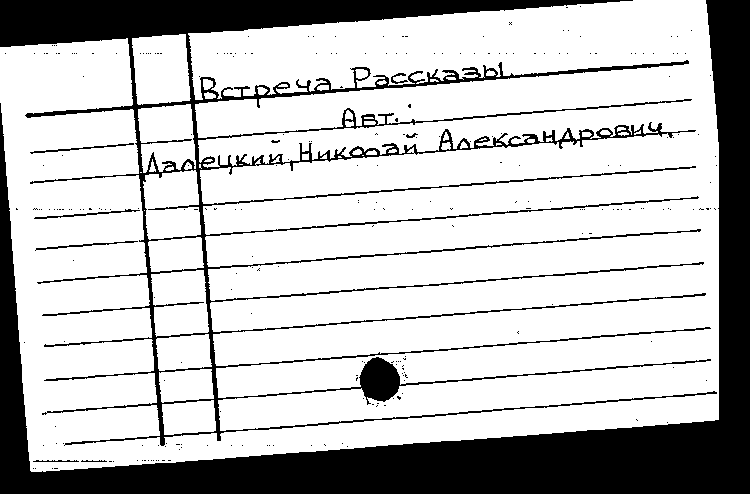 Встреча. Рассказы.
Авт.:
Далецкий, Николай Александрович.